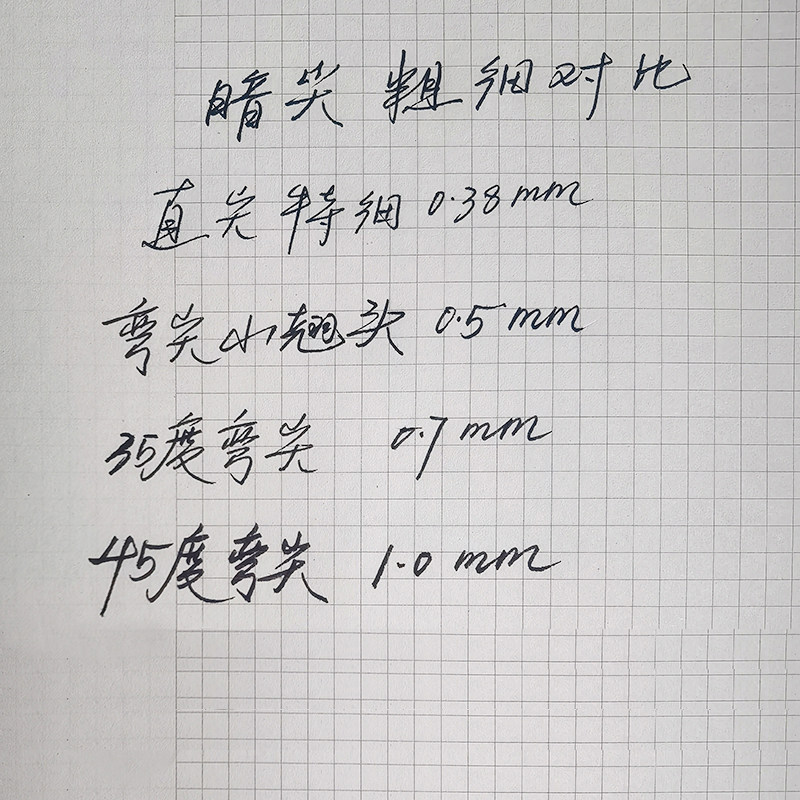 暗尖 粗细对比
直尖特细 0.38mm
弯尖小翘头 0.5mm
35度弯尖 0.7mm
45度弯尖 1.0mm